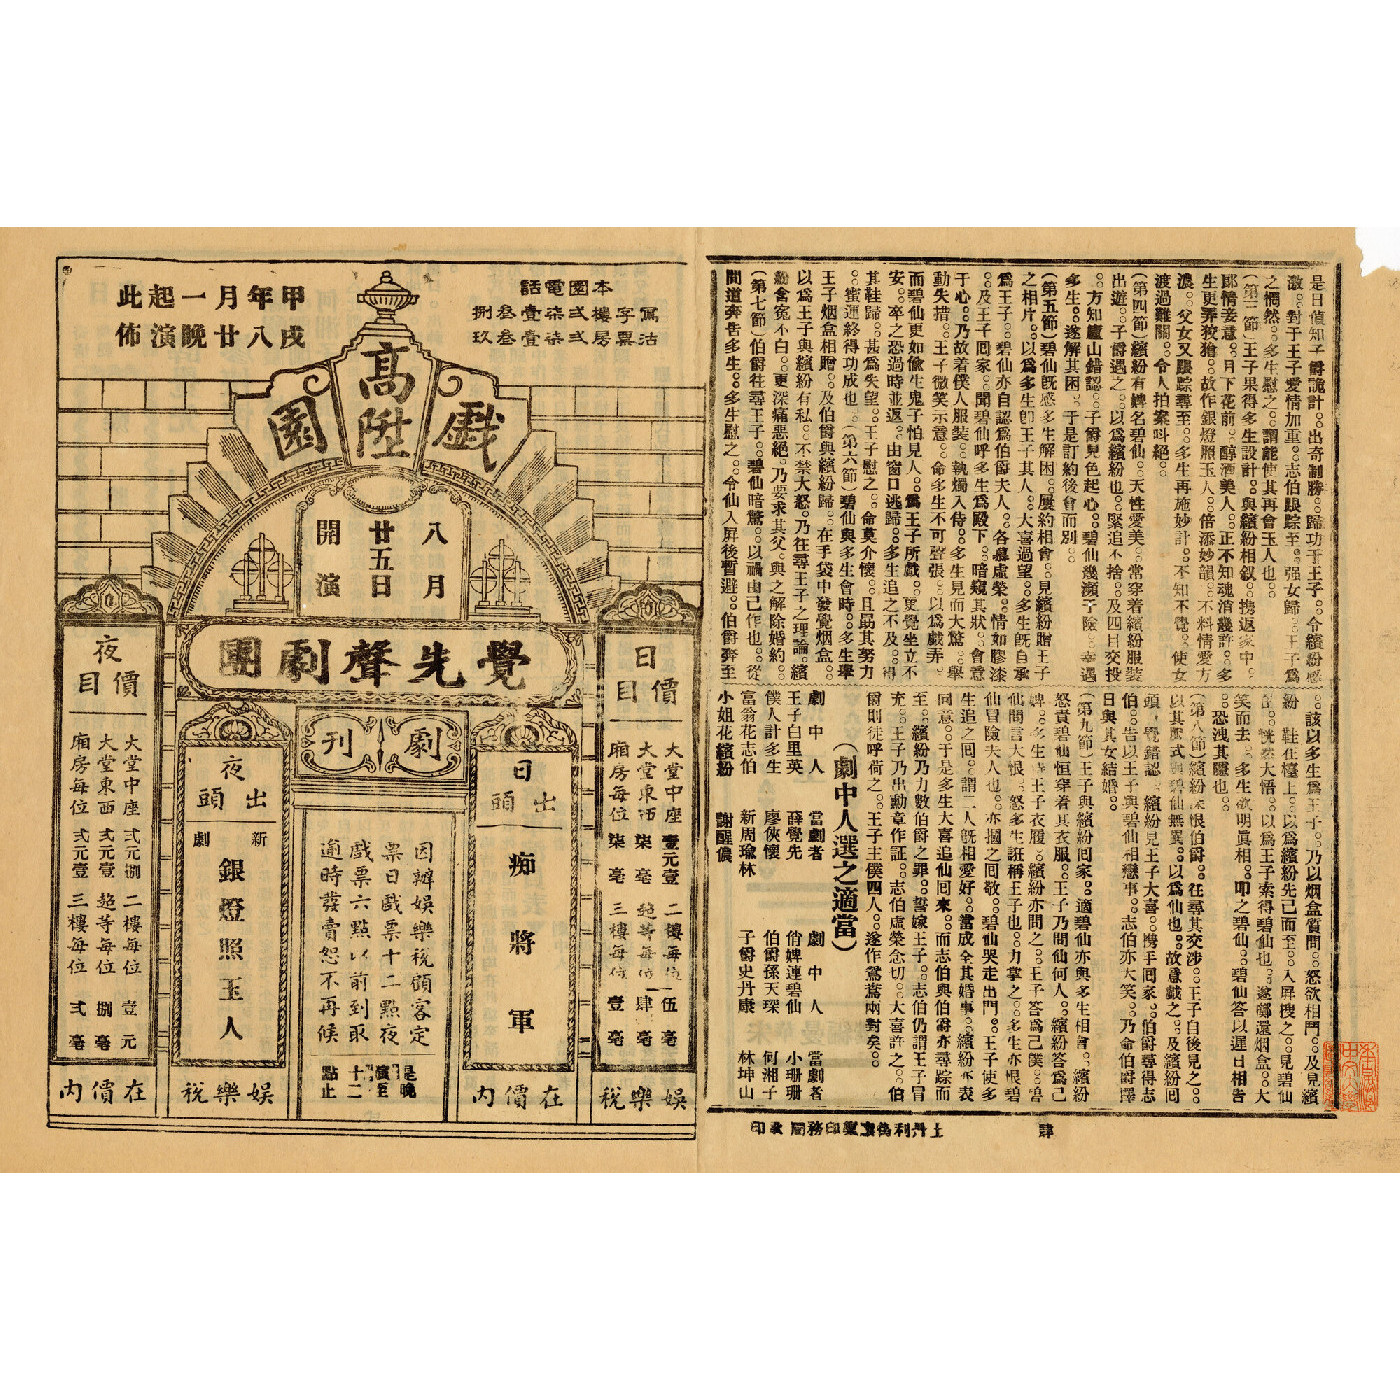 是日偵知子爵詭計。出奇制勝。歸功于王子。令繽紛感
激。對于王子愛情加重。志伯跟踪至。强女歸。王子爲
之惘然。多生慰之。謂能使其再會玉人也。
(第三節)王子果得多生設計。與繽紛相叙。携返家中。
郎情妾意。月下花前。醇酒美人。正不知魂消幾許。多
生更弄狡獪。故作銀燈照玉人。倍添妙韻。不料情愛方
濃。父女又跟踪尋至。多生再施妙計。不知不覺。使女
渡過難關。令人拍案叫絕。
(第四節)繽紛有婢名碧仙。天性愛美。常穿着繽紛服裝
出遊。子爵遇之。以爲繽紛也。緊追不捨。及四目交投
。方知廬山錯認。子爵見色起心。碧仙幾瀕于險。幸遇
多生。遂解其困。于是訂約後會而別。
(第五節)碧仙旣感多生解困。屢約相會。見繽紛贈王子
之相片。以爲多生卽王子其人。大喜過望。多生旣自承
爲王子。碧仙亦自認爲伯爵夫人。各慕虛榮。情如膠漆
。及王子回家。聞碧仙呼多生爲殿下。暗窺其狀。會意
于心。乃故着僕人服裝。執燭入侍。多生見而大驚。舉
動失措。王子微笑示意。命多生不可聲張。以爲戲弄。
而碧仙更如偷生鬼子怕見人。爲王子所戲。更覺坐立不
安。卒之恐過時並返。由窗口逃歸。多生追之不及。得
其鞋歸。甚爲失望。王子慰之。命莫介懷。且勗其努力
。蜜運終得功成也。(第六節)碧仙與多生會時。多生舉
王子烟盒相贈。及伯爵與繽紛歸。在手袋中發覺烟盒。
以爲王子與繽紛有私。不禁大怒。乃往尋王子之理論。繽
紛含寃不白。更深痛惡絕。乃要求其父。與之解除婚約。
(第七節)伯爵往尋王子。碧仙暗驚。以禍由己作也。從
間道奔告多生。多生慰之。令仙入屏後暫避。伯爵奔至
。該以多生爲王子。乃以烟盒質問。怒欲相鬥。及見繽
紛 鞋在檯上。以爲繽紛先己而至。入屏搜之。見碧仙
恍然大悟。以爲王子索得碧仙也。遂擲還烟盒。大
笑而去。多生欲明眞相。叩之碧仙。碧仙答以遲日相告
。恐洩其隱也。
(第八節)繽紛深恨伯爵。往尋其交涉。王子自後見之。
以其服式與碧仙無異。以爲仙也。故意戲之。及繽紛回
頭。覺錯認。繽紛見王子大喜。携手回家。伯爵尋得志
伯。告以王子與碧仙相戀事。志伯亦大笑。乃命伯爵擇
日與其女結婚。
(第九節)王子與繽紛回家。適碧仙亦與多生相會。繽紛
怒責碧仙恒穿着其衣服。王子乃問仙何人。繽紛答爲己
婢。多生 王子衣履。繽紛亦問之。王子答爲己僕。雪
仙聞言大恨。怒多生誑稱王子也。力掌之。多生亦恨碧
仙冒險夫人也。亦摑之回敬。碧仙哭走出門。王子使多
生追之回。謂二人旣相愛好。當成全其婚事。繽紛亦表
同意。于是多生大喜追仙回來。而志伯與伯爵亦尋踪而
至。繽紛乃力數伯爵之罪。誓嫁王子。志伯仍謂王子冒
充。王子乃出勳章作証。志伯虛榮念切。大喜許之。伯
爵則徒呼荷荷。王子主僕四人。遂作鴛鴦兩對矣。
(劇中人選之適當)
劇中人 當劇者 劇中人 當劇者
王子白里英 薛覺先 俏婢連碧仙 小珊珊
僕人計多生 廖俠懷 伯爵孫天琛 何湘子
富翁花志伯 新周瑜林 子爵史丹康 林坤山
小姐花繽紛 謝醒儂
肆
本園電話
寫字樓 弍弍柒壹叁捌
沽票房 弍柒壹壹叁玖
甲戌年八月廿一晚起演此佈
高陞戲園
八月廿五日開演
覺先聲劇團
劇刊
日價目
大堂中座 壹元壹
大堂東西 柒毫
廂房每位
二樓每位 伍毫
超等每位 肆毫
三樓每位 壹毫
娛樂稅
日出頭
痴將軍
在價內
因辦娛樂稅顧客定
票日戲票十二點夜
戲票六點以前到取
過時發賣恕不再候
是晚演至十二點止
夜出頭
新劇
銀燈照玉人
娛樂稅
夜價目
大堂中座 弍元捌
大堂東西 弍元壹
廂房每位 弍元壹
二樓每位 壹元
超等每位 捌毫
三樓每位 弍毫
在價內